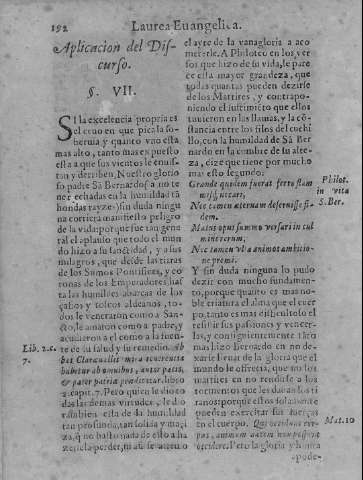 192 Laurea Euangelica.
Aplicacion del Dis-
curso.
§. VII.
SI la excelencia propria es
el cruo en que pica la so-
beruia y quanto vno esta
mas alto, tanto mas expuesto
esta a que sus vientos le
y derriben. Nuestro glorio
so padre Sã Bernardo si a no te
ner echadas en la humildad tã
hondas rayzes sin duda ningu
na corria manifiesto peligro
de la vida porque fue tan gene
ral el aplauso que todo el mun
do hizo a su santidad, y a sus
milagros, que desde las tiaras
de los Sumos Pontifices, y co
ronas de los Emperadores, has
ta las humildes abarcas de los
y toscos aldeanos, to-
dos le veneraron como a San-
cto, le amaron como a padre, y
acudieron a el como a la fuen-
te de su salud y su remedio. Ab
bas Claraeuallis mira reuerentia
habitus ab omnibus, autor pacis,
& pater patriæ
a capit. 7. Pero quien le dio to
das las demas virtudes, le dio
tambien esta de la humildad
tan profunda, tan solida y maci
ça, que no bastonada de esto a ha
zerla perder, ni a si se atreuo
Lib. 2. c.
7.
el ayre de la vanagloria a aco
meterle. A Philoteo en los ver
sos que hizo de su vida, le pare
ce esta mayor grandeza, que
todas quantas pueden dezirse
de los Martires, y contrapo-
niendo el sufrimiẽto que ellos
tuuieron en las llamas, y la cõ-
stancia entre los filos del cuchi
llo, con la humildad de Sã Ber
nardo en la cumbre de su alte-
za, dize que tiene por mucho
mas esto segundo.
Grande quidem fuerat ferro flam
misq́;
Nec tamen æternam deseruisse fi-
dem.
Maius opus summo versari in cul
mine rerum;
Nec tamen vlla animo ambitio-
ne premi.
Y sin duda ninguna lo pudo
dezir con mucho fundamen-
to, porque quanto es mas no-
ble criatura el alma que el cuer
po, tanto es mas dificultoso el
resistir sus passiones y vencer-
las, y consiguientemente tãto
mas hizo Bernardo en no de-
xarse lleuar de la gloria que el
mundo le ofrecia, que no los
martires en no rendirse a los
tormentos que les dauan los ti
ranos porque estos solamente
pueden exercitar sus fuerças
en el cuerpo. Qui occidunt cor-
pus, animam autem non possunt
occidere. Pero la gloria y honra
pode-
Philot.
in vita
S. Ber.
Mat. 10